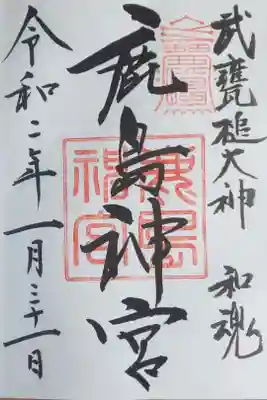 武甕槌大神 和魂
鹿島神宮
令和二年一月三十一日
鹿島神宮